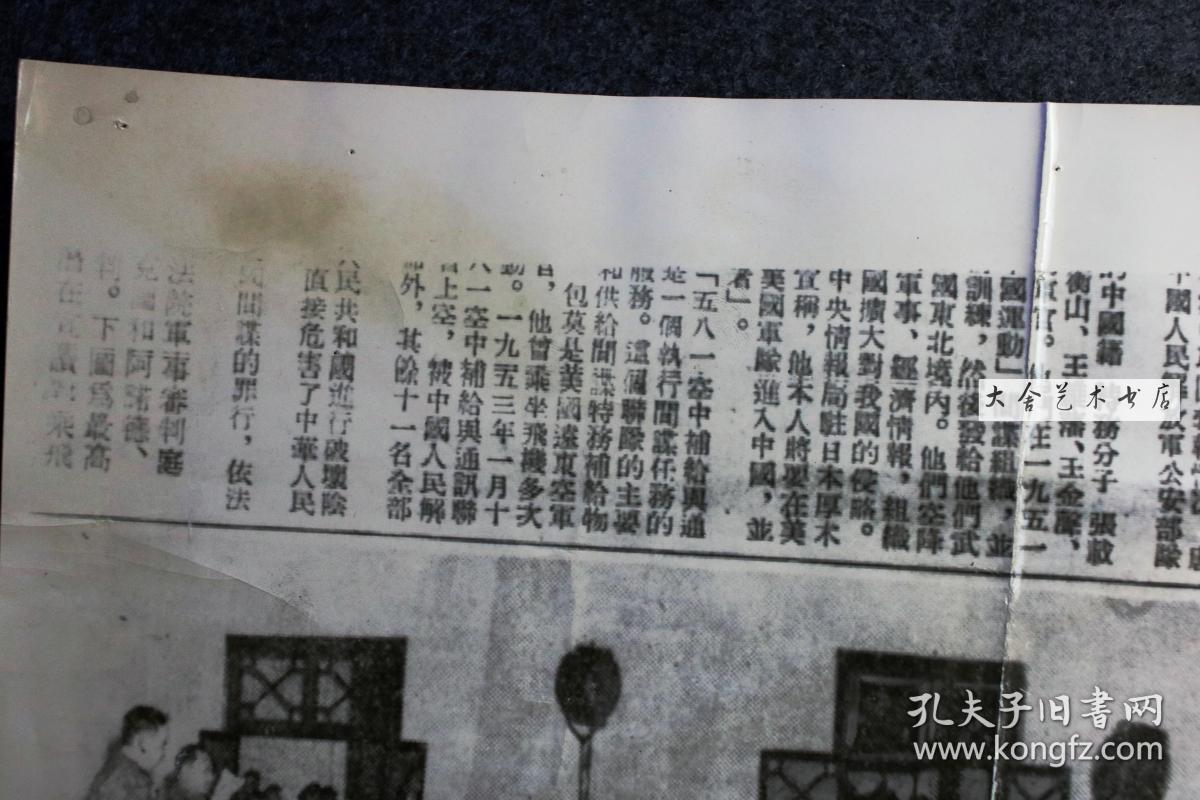 國人民解放軍公安部隊
中國籍 務分子 張載
衡山、王 藩、王金聲、
官。 在一九五一
國運動」 諜組織，並
訓練，然後發給他們武
國東北境內。他們空降
軍事、經濟情報，組織
國擴大對我國的侵略。
中央情報局駐日本厚木
宣稱，他本人將要在美
美國軍隊進入中國，並
者」。
「五八一空中補給與通
是一個執行間諜任務的
服務。這個聯隊的主要
和供給間諜特務補給物
包莫是美國遠東空軍
官，他曾乘坐飛機多次
動。一九五三年一月十
八一空中補給與通訊聯
上空，被中國人民解
外，其餘十一名全部
人民共和國進行破壞陰
直接危害了中華人民
間諜的罪行，依法
法院軍事審判庭
克圖和阿諾德、
判。下圖爲最高
乘飛
大舍艺术书店
孔夫子旧書网
www.kongfz.com